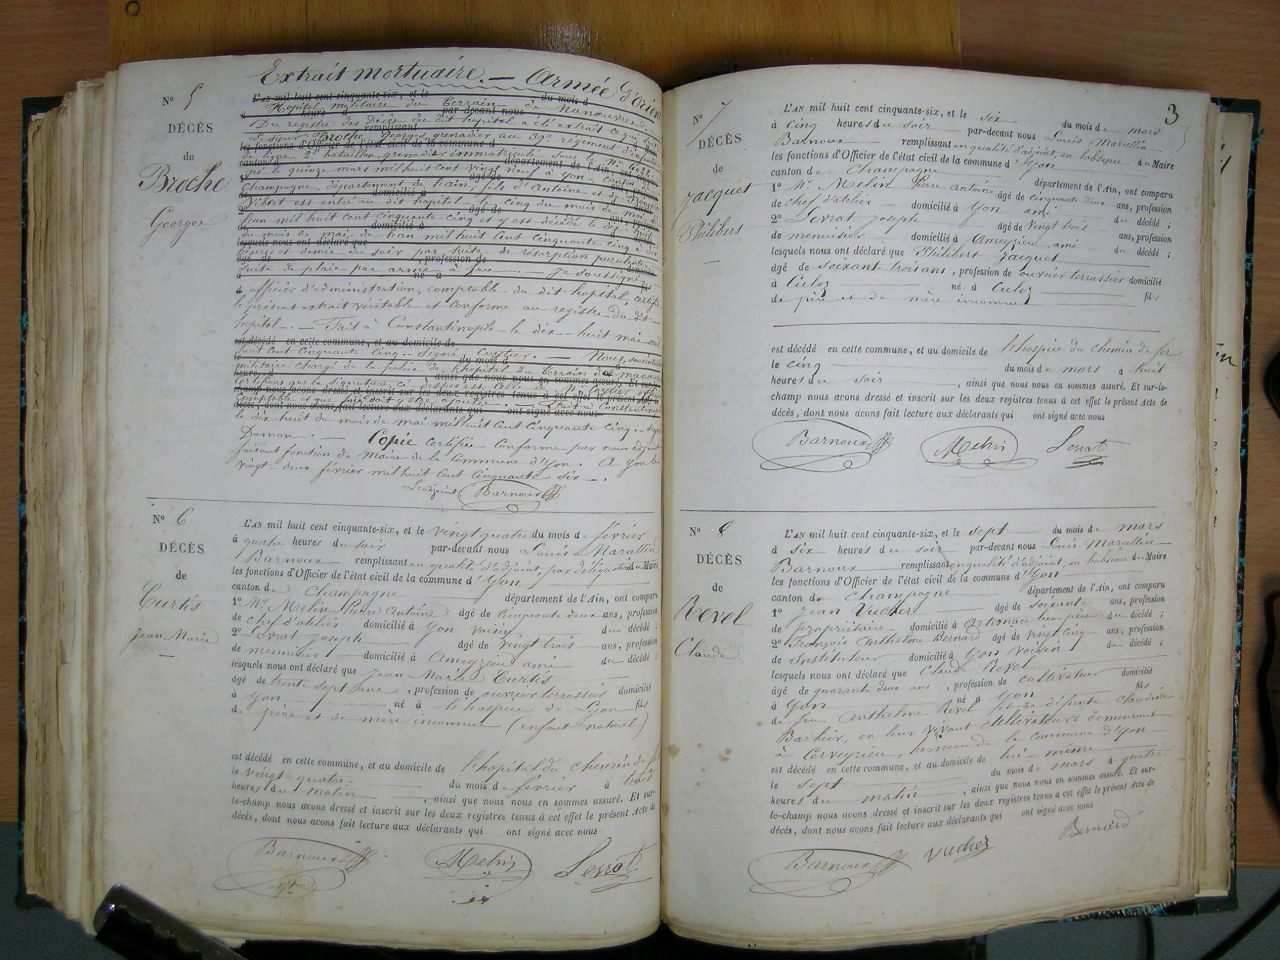 Extrait mortuaire. — Armée d'Orient
N° 5
DÉCÈS
de
Broche
Georges
L'AN mil huit cent cinquante-six, et le du mois d
Hôpital militaire du terrain de manoeuvres
par-devant nous
Du registre des Décès du dit hôpital a été extrait ce qui suit
remplissant
le sieur Broche Georges grenadier au 39e régiment
les fonctions d'Officier de l'état civil de la commune d
département de l'Ain
né le quinze mars mil huit cent vingt neuf à Yon Canton de
Champagne, département de l'ain, fils d'Antoine et de
est entré au dit hôpital le cinq du mois de mai
l'an mil huit cent cinquante cinq et y est décédé le dix huit
du mois de mai de l'an mil huit cent cinquante cinq à
lesquels nous ont déclaré que
du soir par suite de résorption purulente
suite de plaie par arme à feu. — Je soussigné
officier d'administration, comptable du dit hôpital, certifie
le présent extrait véritable et conforme au registre du dit
hopital. — Fait à Constantinople le dix-huit mai mil
est décédé en cette commune, et au domicile de
huit cent cinquante cinq. Signé — Nous, sous-intendant
militaire chargé de la police de l'hôpital du terrain de manoeuvres
certifions que la signature ci-dessus est celle de
comptable et que foi doit y être ajoutée. Constantinople
le dix huit du mois de mai mil huit cent cinquante cinq. — Signé
— Copie certifiée conforme par nous adjoint
faisant fonction de Maire de la Commune d'Yon. A Yon le
vingt deux février mil huit cent cinquante six —.
L'adjoint Barnoux
N° 6
DÉCÈS
de
Curtis
Jean Marie
L'AN mil huit cent cinquante-six, et le vingt quatre du mois de février
à quatre heures du soir par-devant nous Louis Marullin
Barnoux remplissant en qualité d'adjoint, par délégation du Maire
les fonctions d'Officier de l'état civil de la commune d'Yon
canton de Champagne département de l'Ain, ont comparu
1° Mr. Melin Pierre Antoine âgé de cinquante deux ans, profession
de chef d'atelier domicilié à Yon voisin du décédé ;
2° Serrat Joseph âgé de vingt trois ans, profession
de menuisier domicilié à Ameyzieu ami du décédé ;
lesquels nous ont déclaré que Jean Marie Curtis
âgé de trente sept ans, profession de ouvrier terrassier domicilié
à Yon né à l'hospice de Lyon fils
de père et de mère inconnu (enfant naturel)
est décédé en cette commune, et au domicile de l'hopital du chemin de fer
le vingt quatre du mois de février à trois
heures du matin, ainsi que nous nous en sommes assuré. Et sur-
le-champ nous avons dressé et inscrit sur les deux registres tenus à cet effet le présent Acte de
décès, dont nous avons fait lecture aux déclarants qui ont signé avec nous
Barnoux Melin Serrat
3
N° 7
DÉCÈS
de
Jacquet
Philibert
L'AN mil huit cent cinquante-six, et le six du mois de mars
à cinq heures du soir par-devant nous Louis Marullin
Barnoux remplissant en qualité d'adjoint, en l'absence du Maire
les fonctions d'Officier de l'état civil de la commune d'Yon
canton de Champagne département de l'Ain, ont comparu
1° Mr. Melin Pierre Antoine âgé de cinquante deux ans, profession
de chef d'atelier domicilié à Yon ami du décédé ;
2° Serrat Joseph âgé de vingt trois ans, profession
de menuisier domicilié à Ameyzieu ami du décédé ;
lesquels nous ont déclaré que Philibert Jacquet
âgé de soixant trois ans, profession de ouvrier terrassier domicilié
à Culoz né à Culoz fils
de père et de mère inconnu
est décédé en cette commune, et au domicile de l'hospice du chemin de fer
le cinq du mois de mars à huit
heures du soir, ainsi que nous nous en sommes assuré. Et sur-le-
champ nous avons dressé et inscrit sur les deux registres tenus à cet effet le présent Acte de
décès, dont nous avons fait lecture aux déclarants qui ont signé avec nous
Barnoux Melin Serrat
N° 8
DÉCÈS
de
Revel
Claude
L'AN mil huit cent cinquante-six, et le sept du mois de mars
à six heures du soir par-devant nous Louis Marullin
Barnoux remplissant en qualité d'adjoint, en l'absence du Maire
les fonctions d'Officier de l'état civil de la commune d'Yon
canton de Champagne département de l'Ain, ont comparu
1° Jean Vucher âgé de soixante ans, profession
de propriétaire domicilié à Artemare du décédé ;
2° François Anthelme Bernard âgé de vingt cinq ans, profession
de Instituteur domicilié à Yon voisin du décédé ;
lesquels nous ont déclaré que Claude Revel
âgé de quarante deux ans, profession de cultivateur domicilié
à Yon né à Yon fils
de feu Anthelme Revel et de défunte Claudine
Barbier, en leur vivant cultivateurs demeurant
à Cerveyrieu, hameau de la commune d'Yon
est décédé en cette commune, et au domicile de lui-même
le sept du mois de mars à quatre
heures du matin, ainsi que nous nous en sommes assuré. Et sur-
le-champ nous avons dressé et inscrit sur les deux registres tenus à cet effet le présent Acte de
décès, dont nous avons fait lecture aux déclarants qui ont signé avec nous
Barnoux Vucher Bernard